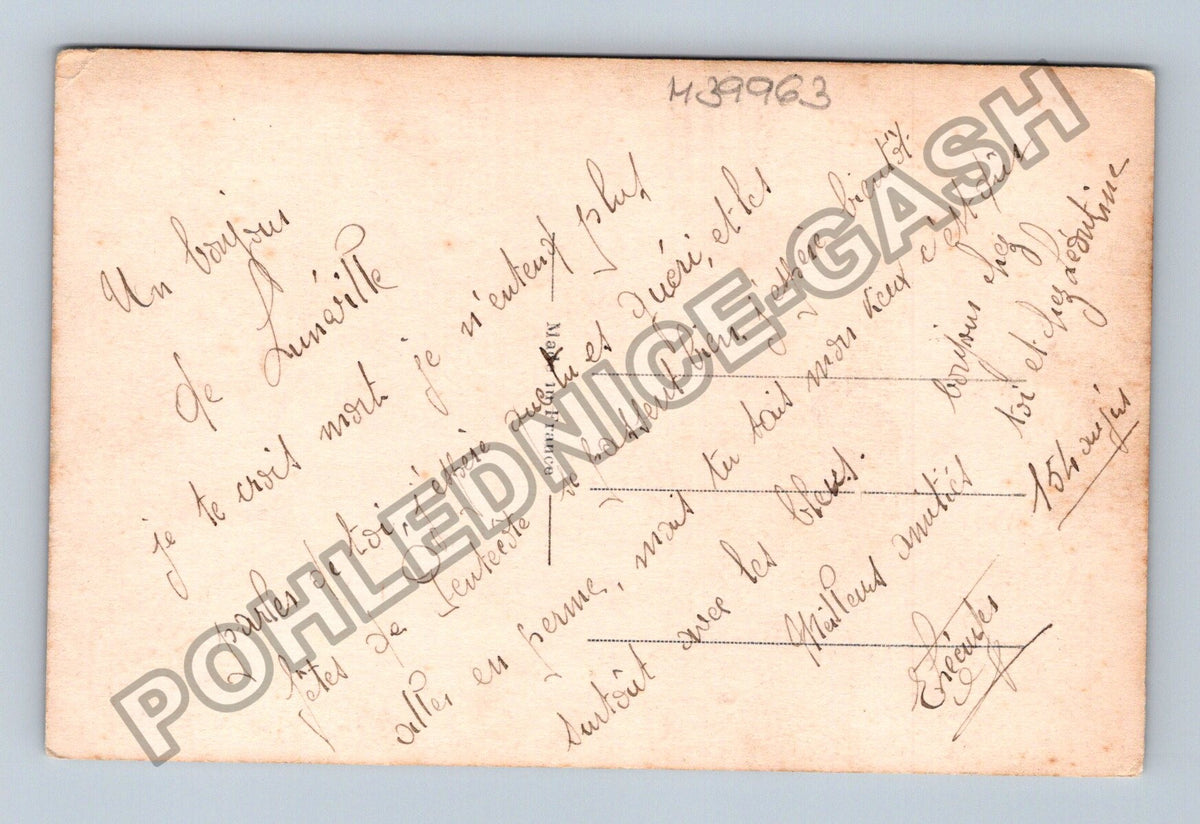 M39963
Un bonjour
de Lunéville
je te crois mort je n'entend plus
parler de toi, j'espère que tu es guéri, et les
fêtes de Pentecôte se passent bien, j'espère bientôt
aller en perme, mais tu sais mon vieux c'est dûr
surtoût avec les bleus.
Meilleurs amitiés
bonjour chez
toi et chez Léontine
154 au jus
Made in France
POHLEDNICE-GASH